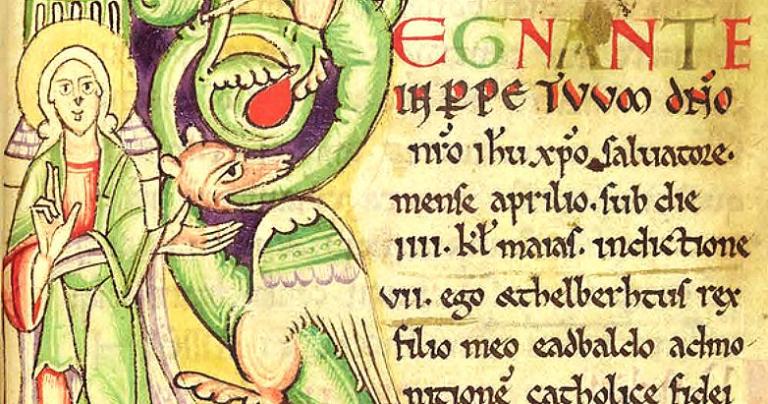 REGNANTE
IN PPETUUM DÑO
nr̄o ihū xp̄o saluatore.
mense aprilio. sub die
iiii. kl̄ maias. indictione
vii. ego æthelberhtus rex
filio meo eadbaldo admo
nitionē catholice fidei